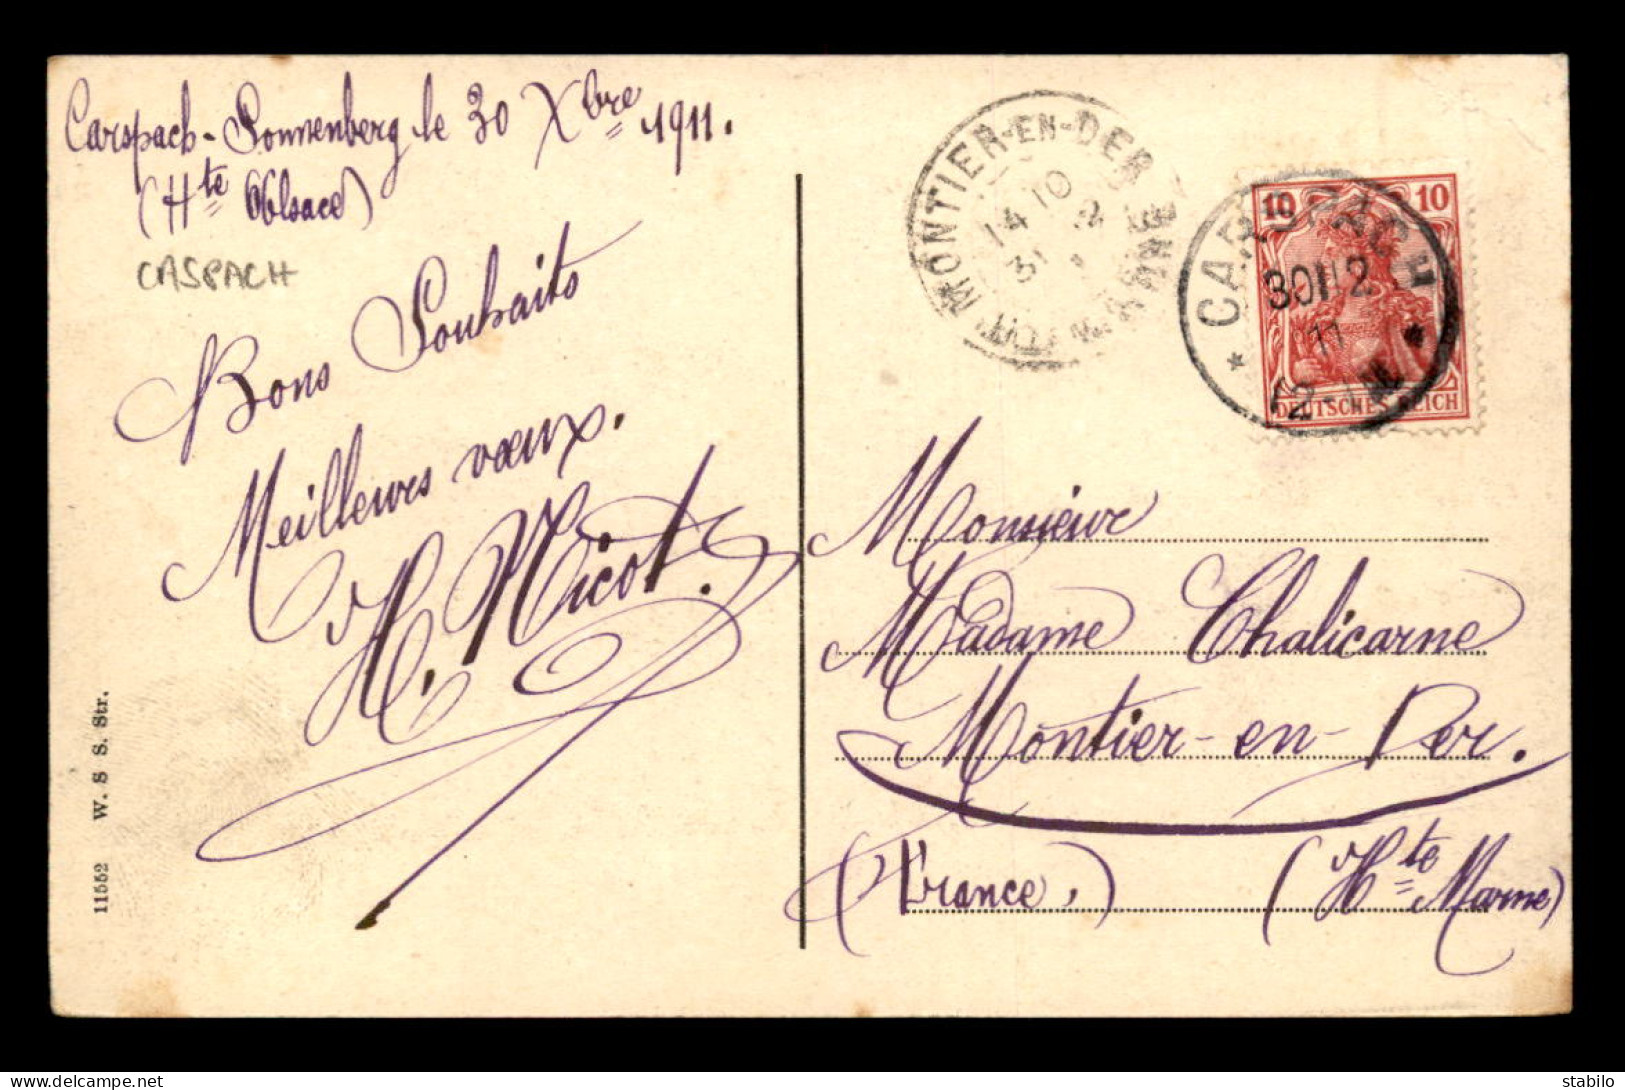 Carspach-Sonnenberg le 30 Xbre 1911.
(Hte Alsace)
CASPACH
Bons Souhaits
Meilleurs vœux.
H. Nicot.
11552 W. S S. Str.
MONTIER-EN-DER
14 10
31 12
HTE MARNE
10 10
DEUTSCHES REICH
CARSPACH
30 12
11
12-1 N
Monsieur
Madame Chalicarne
Montier-en-Der.
(France,) (Hte Marne)
stabilo